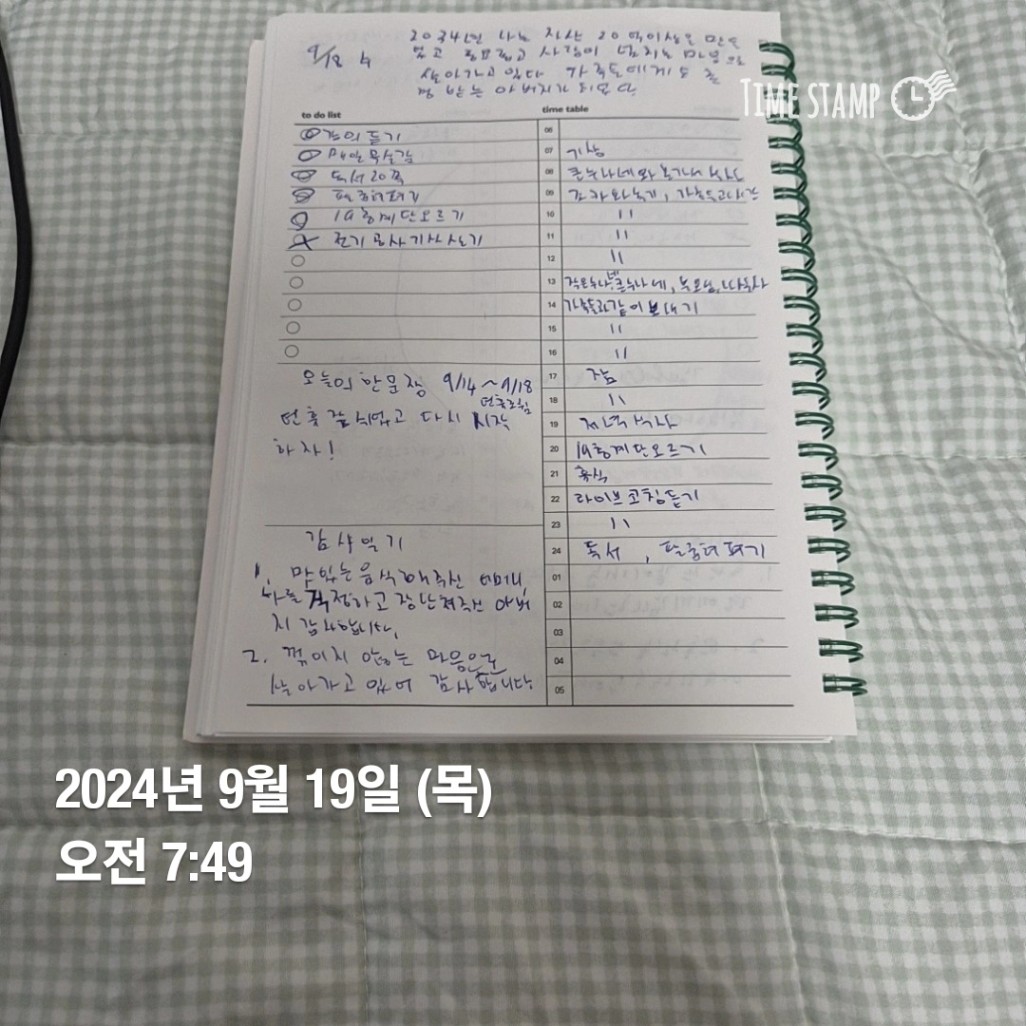 9/18 수
2034년 나는 자산 20억이상을 만들
었고 풍요롭고 사랑이 넘치는 마음으로
살아가고 있다 가족들에게도 존
경 받는 아버지가 되었다
TIME STAMP
to do list
time table
강의듣기
독서 20쪽
19층계단오르기
전기공사기사
오늘의 한문장 9/14~9/18
연휴
연휴 잘 쉬었고 다시 시작
하자!
감사일기
1. 맛있는 음식해주신 어머니,
나를 걱정하고 장난쳐주신 아버
지 감사합니다.
2. 꺾이지 않는 마음으로
살아가고 있어 감사합니다
06
07 기상
08 큰누나네와
09 가족들과
10 11
11 11
12 11
13 작은누나네 큰누나네, 부모님,
14 가족들과 같이 보내기
15 11
16 11
17 잠
18 11
19 저녁식사
20 19층계단오르기
21 휴식
22 라이브코칭듣기
23 11
24 독서,
01
02
03
04
05
2024년 9월 19일 (목)
오전 7:49